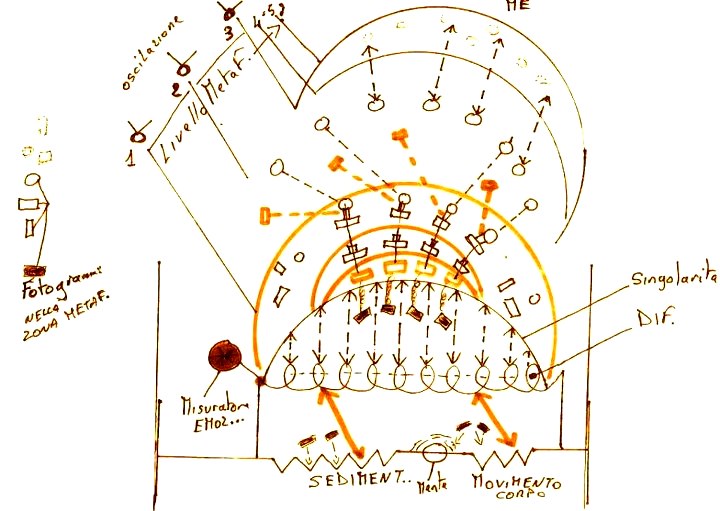 ME
4.5.?
3
oscilazione
2
Livello MetaF.
1
Fotogrammi
NELLA
ZONA METAF.
Singolarità
DIF.
Misuratore
EMOZ...
SEDIMENT..
Mente
MOVIMENTO
CORPO